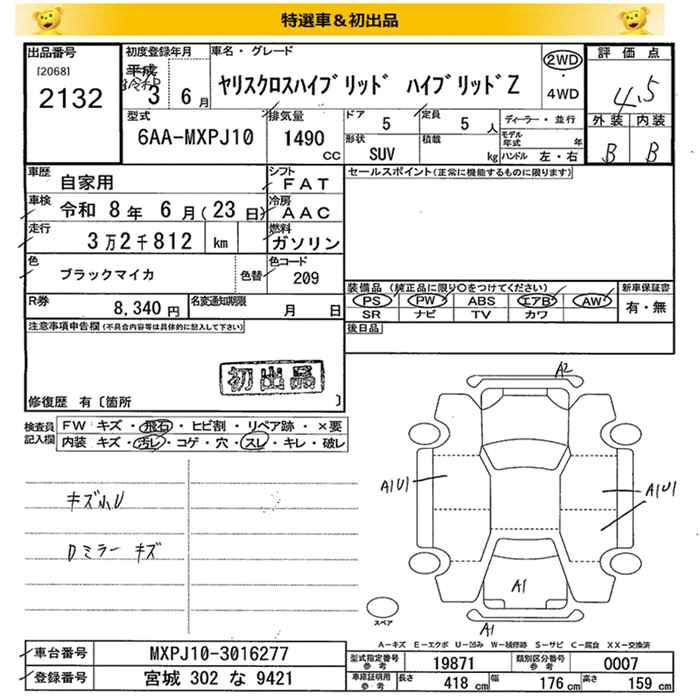 特選車&初出品
出品番号
[2068]
2132
初度登録年月
平成
令和
3 6月
車名・グレード
ヤリスクロスハイブリッド ハイブリッドZ
2WD
・
4WD
評価点
4.5
外装 内装
B B
型式
6AA-MXPJ10
排気量
1490
cc
ドア 5
定員 5 人
形状
SUV
積載
kg
ディーラー・並行
モデル年式 年
ハンドル 左・右
車歴
自家用
シフト
FAT
車検
令和 8年 6月(23日)
冷房
AAC
走行
3万2千812 km
燃料
ガソリン
色
ブラックマイカ
色替
色コード
209
R券
8,340円
名変通知期限
月 日
セールスポイント(正常に機能するものに限ります)
装備品(純正品に限り○をつけてください)
PS PW ABS エアB AW
SR ナビ TV カワ
新車保証書
有・無
後日品
注意事項申告欄(不具合内容等は具体的に記入して下さい)
初出品
修復歴 有〔箇所 〕
検査員
記入欄
FW キズ・飛石・ヒビ割・リペア跡・×要
内装 キズ・汚レ・コゲ・穴・スレ・キレ・破レ
キズ小U
Dミラー キズ
A2
A1U1
A1U1
A1
A1
スペア
A-キズ E-エクボ U-凹み W-補修跡 S-サビ C-腐食 XX-交換済
車台番号
MXPJ10-3016277
登録番号
宮城 302 な 9421
型式指定番号
参考
19871
類別区分番号
参考
0007
車庫証明用
参考
長さ 418cm
幅 176cm
高さ 159cm